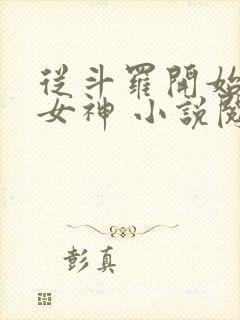 從斗羅開始
女神 小說閱
彭真